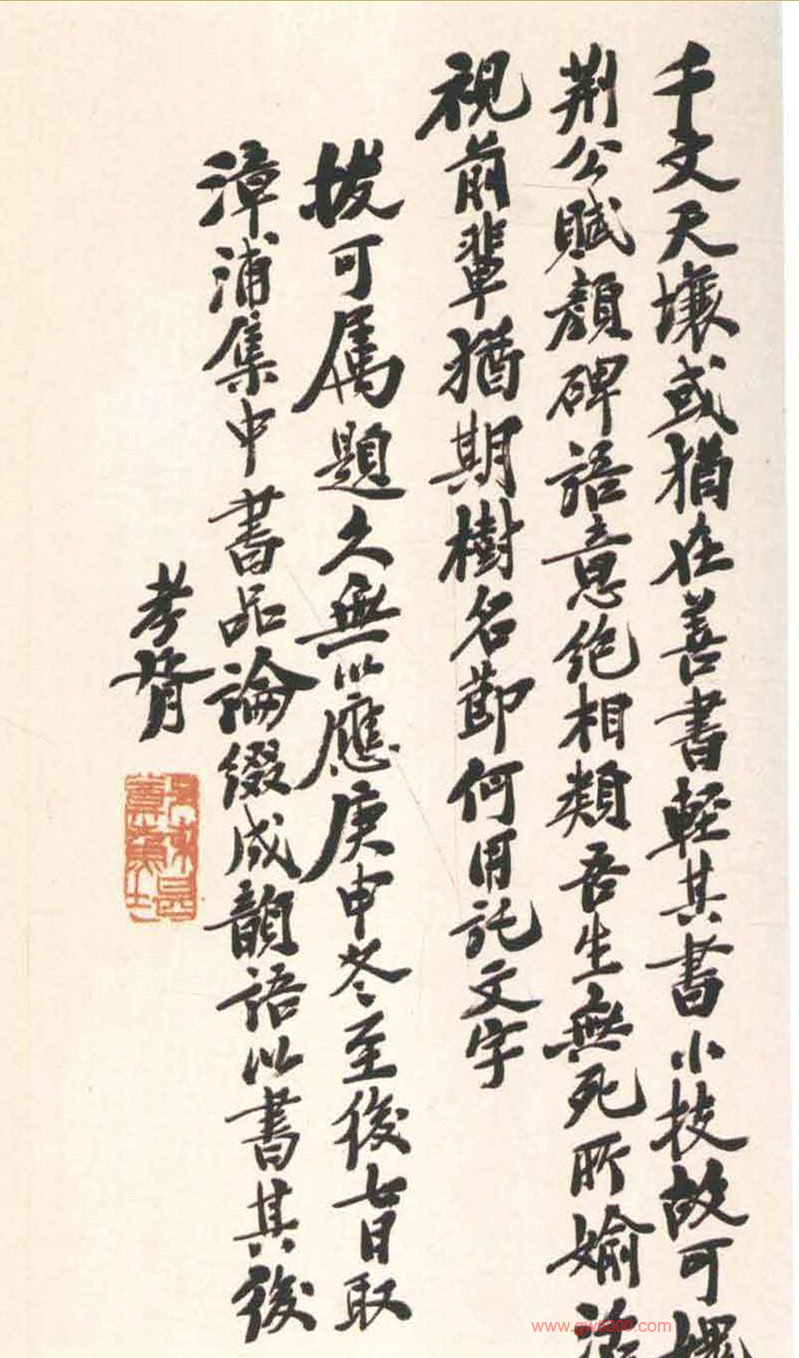 千文天壤或猶在善書輕其書小技故可
荆公賦顏碑語意絶相類吾生無死所媮活
視前輩猶期樹名節何用託文字
拔可属題久無以應庚申冬至後七日取
漳浦集中書品論綴成韻語以書其後
孝胥
www.gw8000.com